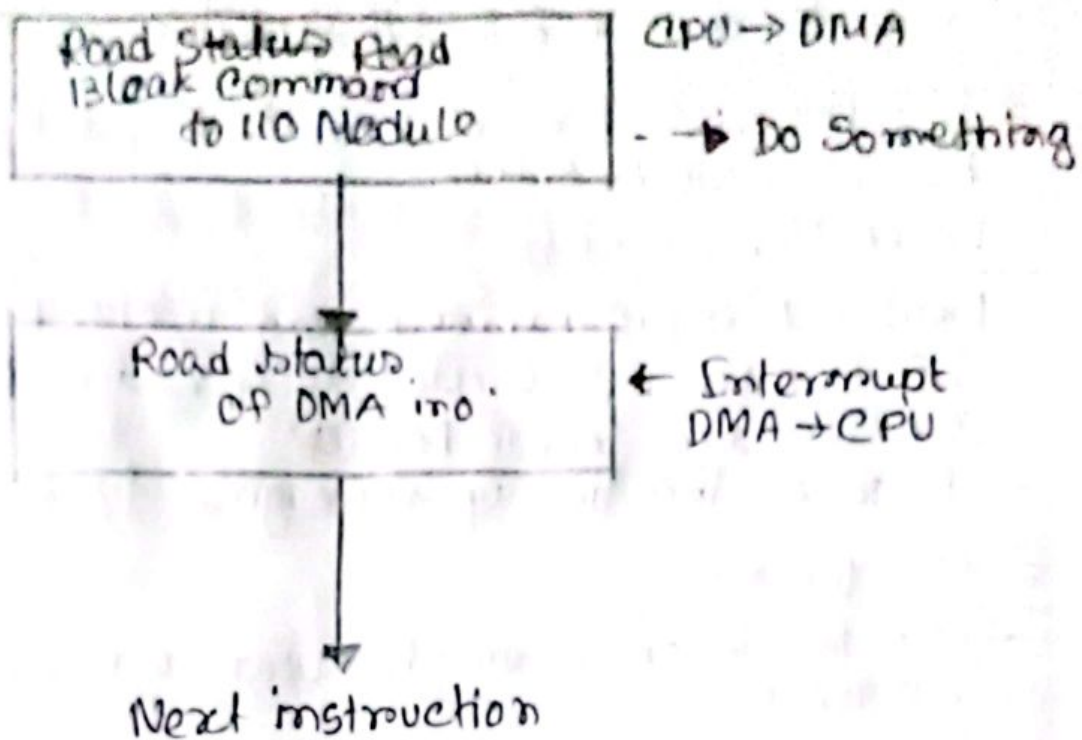 Road Status Read
Bloak Command
to I/O Module
CPU → DMA
→ Do Something
Road Status
Of DMA
← Interrupt
DMA → CPU
Next instruction